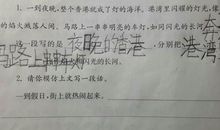 1. 一到夜晚,整个香港就成了灯的海洋。港湾里闪耀的灯光,像
的焰火溅落人间。马路上一串串明亮的车灯,如同闪光的长河奔
一段写的是 夜晚的香港 ,分别把 港湾
马路上串串灯 和闪光的长河。
2. 请你模仿上文写一段话。
一到假日,街上就热闹起来。